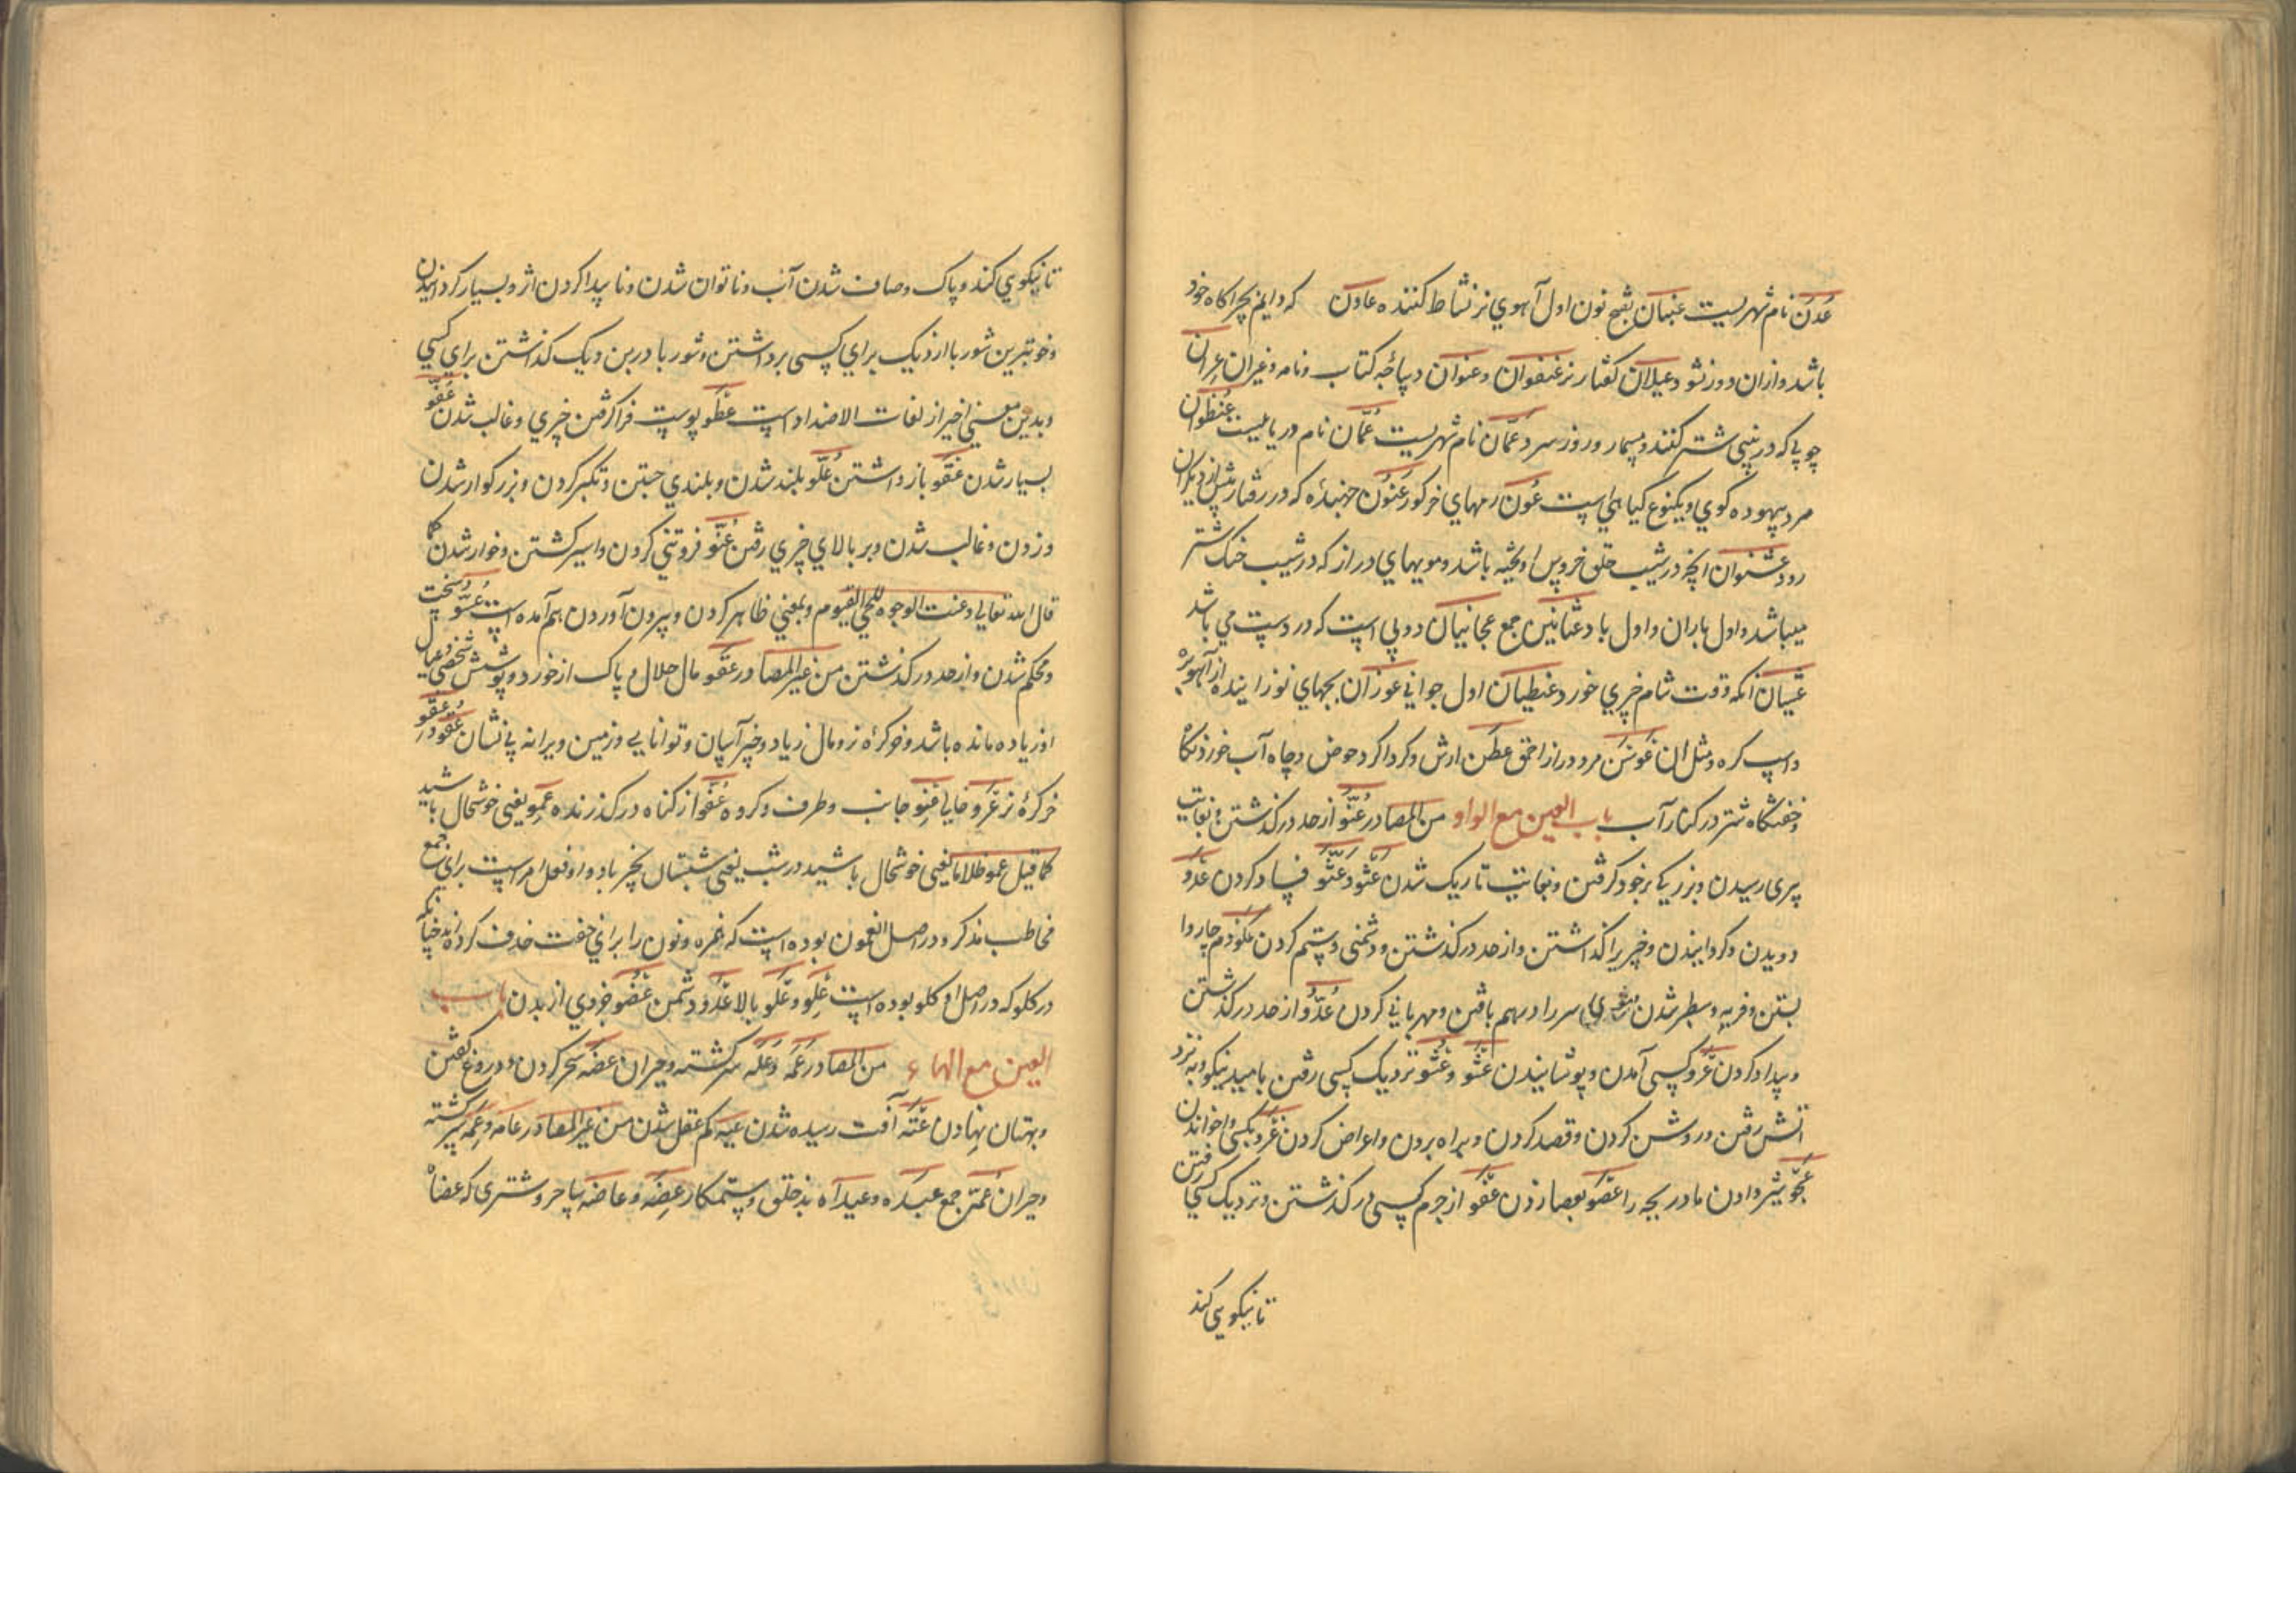 عَدَن نام شهریست عنبان بفتح نون اول آهوي نر نشاط کننده عاون که دایم بچراکاه خود
باشد وازان دور نشود عیلان کفتار نر عنفوان وعنوان دیباچهٔ کتاب ونامه وغیران عران
چوبی که در بینی شتر کنند ومیسمار وروز سرد عَمّان نام شهریست عُمّان نام دریائیست عُنظوان
مرد بیهوده کوي ویکنوع کیاهی است عُون رمهاي خر کور عَنوُن جنبندهٔ که در رفتار پیش از دیکران
رود عشنوان انچه در شیب حلق خروس اویخته باشد ومویهاي دراز که در شیب خنک شتر
میباشد واول باران واول باد عثانین جمع عجانیان دو پی است که در دست می باشد
عَشیان انکه وقت شام چیزي خورد عنطیان اول جواني عوزان بچهاي نوزاینده از آهو بره
واسپ کره ومثل ان عَوسَن مرد دراز احمق عطَن ارش وکرداکرد حوض وچاه آب خور ونکاه
وخفتنکاه شتر در کنار آب باب العین مع الواو من المصادر عُتُوّ از حد درکذشتن وبغایت
پیری رسیدن وبزرکي بر خود کرفتن وبغایت تاریک شدن عَثو وعُثوّ فساد کردن عَدو
دویدن وکردانیدن وچیزي را کذاشتن واز حد درکذشتن ودشمني وستم کردن عَکو دم چاروا
بستن وفربه وسطبر شدن وموي سر را درهم بافتن ومهرباني کردن عُدُوّ از حد درکذشتن
وبیداد کردن عَرو کسی آمدن وپوشانیدن عَشو وعُشوّ نزدیک کسی رفتن بامید نیکو وبه نزد
اتش رفتن وروشن کردن وقصد کردن وبراه بردن واعراض کردن عَزو بکسی واخواندن
عَجو شیر دادن مادر بچه را عَصو بعصا زدن عَفو از جرم کسی درکذشتن ونزدیک کسی رفتن
تا نیکویی کند
تا نیکویي کند وپاک وصاف شدن آب وناتوان شدن وناپیدا کردن اثر وبسیار کردانیدن
وخوبترین شوربا از دیک براي کسی برداشتن وشوربا در بن دیک کذاشتن براي کسي
وبدین معني اخیر از لغات الاضداد است عَظو پوست فرا کرفتن چیزي وغالب شدن عَفو
بسیار شدن عَقو باز داشتن عُلوّ بلند شدن وبلندي جستن وتکبر کردن وبزرکوار شدن
وزدن وغالب شدن وبر بالاي چیزي رفتن عُنُوّ فروتني کردن واسیر کشتن وخوار شدن کما
قال الله تعالي وعنت الوجوه للحي القیوم وبمعني ظاهر کردن وبیرون آوردن هم آمده است عُسُوّ سخت
ومحکم شدن واز حد درکذشتن من غیر المصادر عَفو مال حلال وپاک از خورد وپوشش شخصی وعیال
او زیاده مانده باشد وخر کرهٔ نر ومال زیاد وچیز آسان وتوانایي وزمین ویرانه بي نشان
خر کرهٔ نر عِرو خالي عِنو جانب وطرف وکروه عَفُوّ از کناه درکذرنده عِمو یعني خوشحال باشید
کما قیل عمو ظلاما یعنی خوشحال باشید در شب یعنی شبتان بخیر باد واو فعل امر است براي جمع
مخاطب مذکر ودر اصل انعمون بوده است که همزه ونون را براي خفت حذف کرده اند چنانکه
در کلو که در اصل اوکلو بوده است عَلو وعُلو بالا عَدُوّ دشمن عُضو جزوي از بدن باب
العین مع الهاء من المصادر عَمَه وعَلَه سرکشته وحیران عضَه سحر کردن ودروغ کفتن
وبهتان نهادن عَتَه آفت رسیده شدن عیه کم عقل شدن من غیر المصادر عامه وعَمِه سرکشته
وحیران عُمّه جمع عیده وعیداه بدخلق وستمکار عِضَه وعاضه ساحر وشتری که عضاه